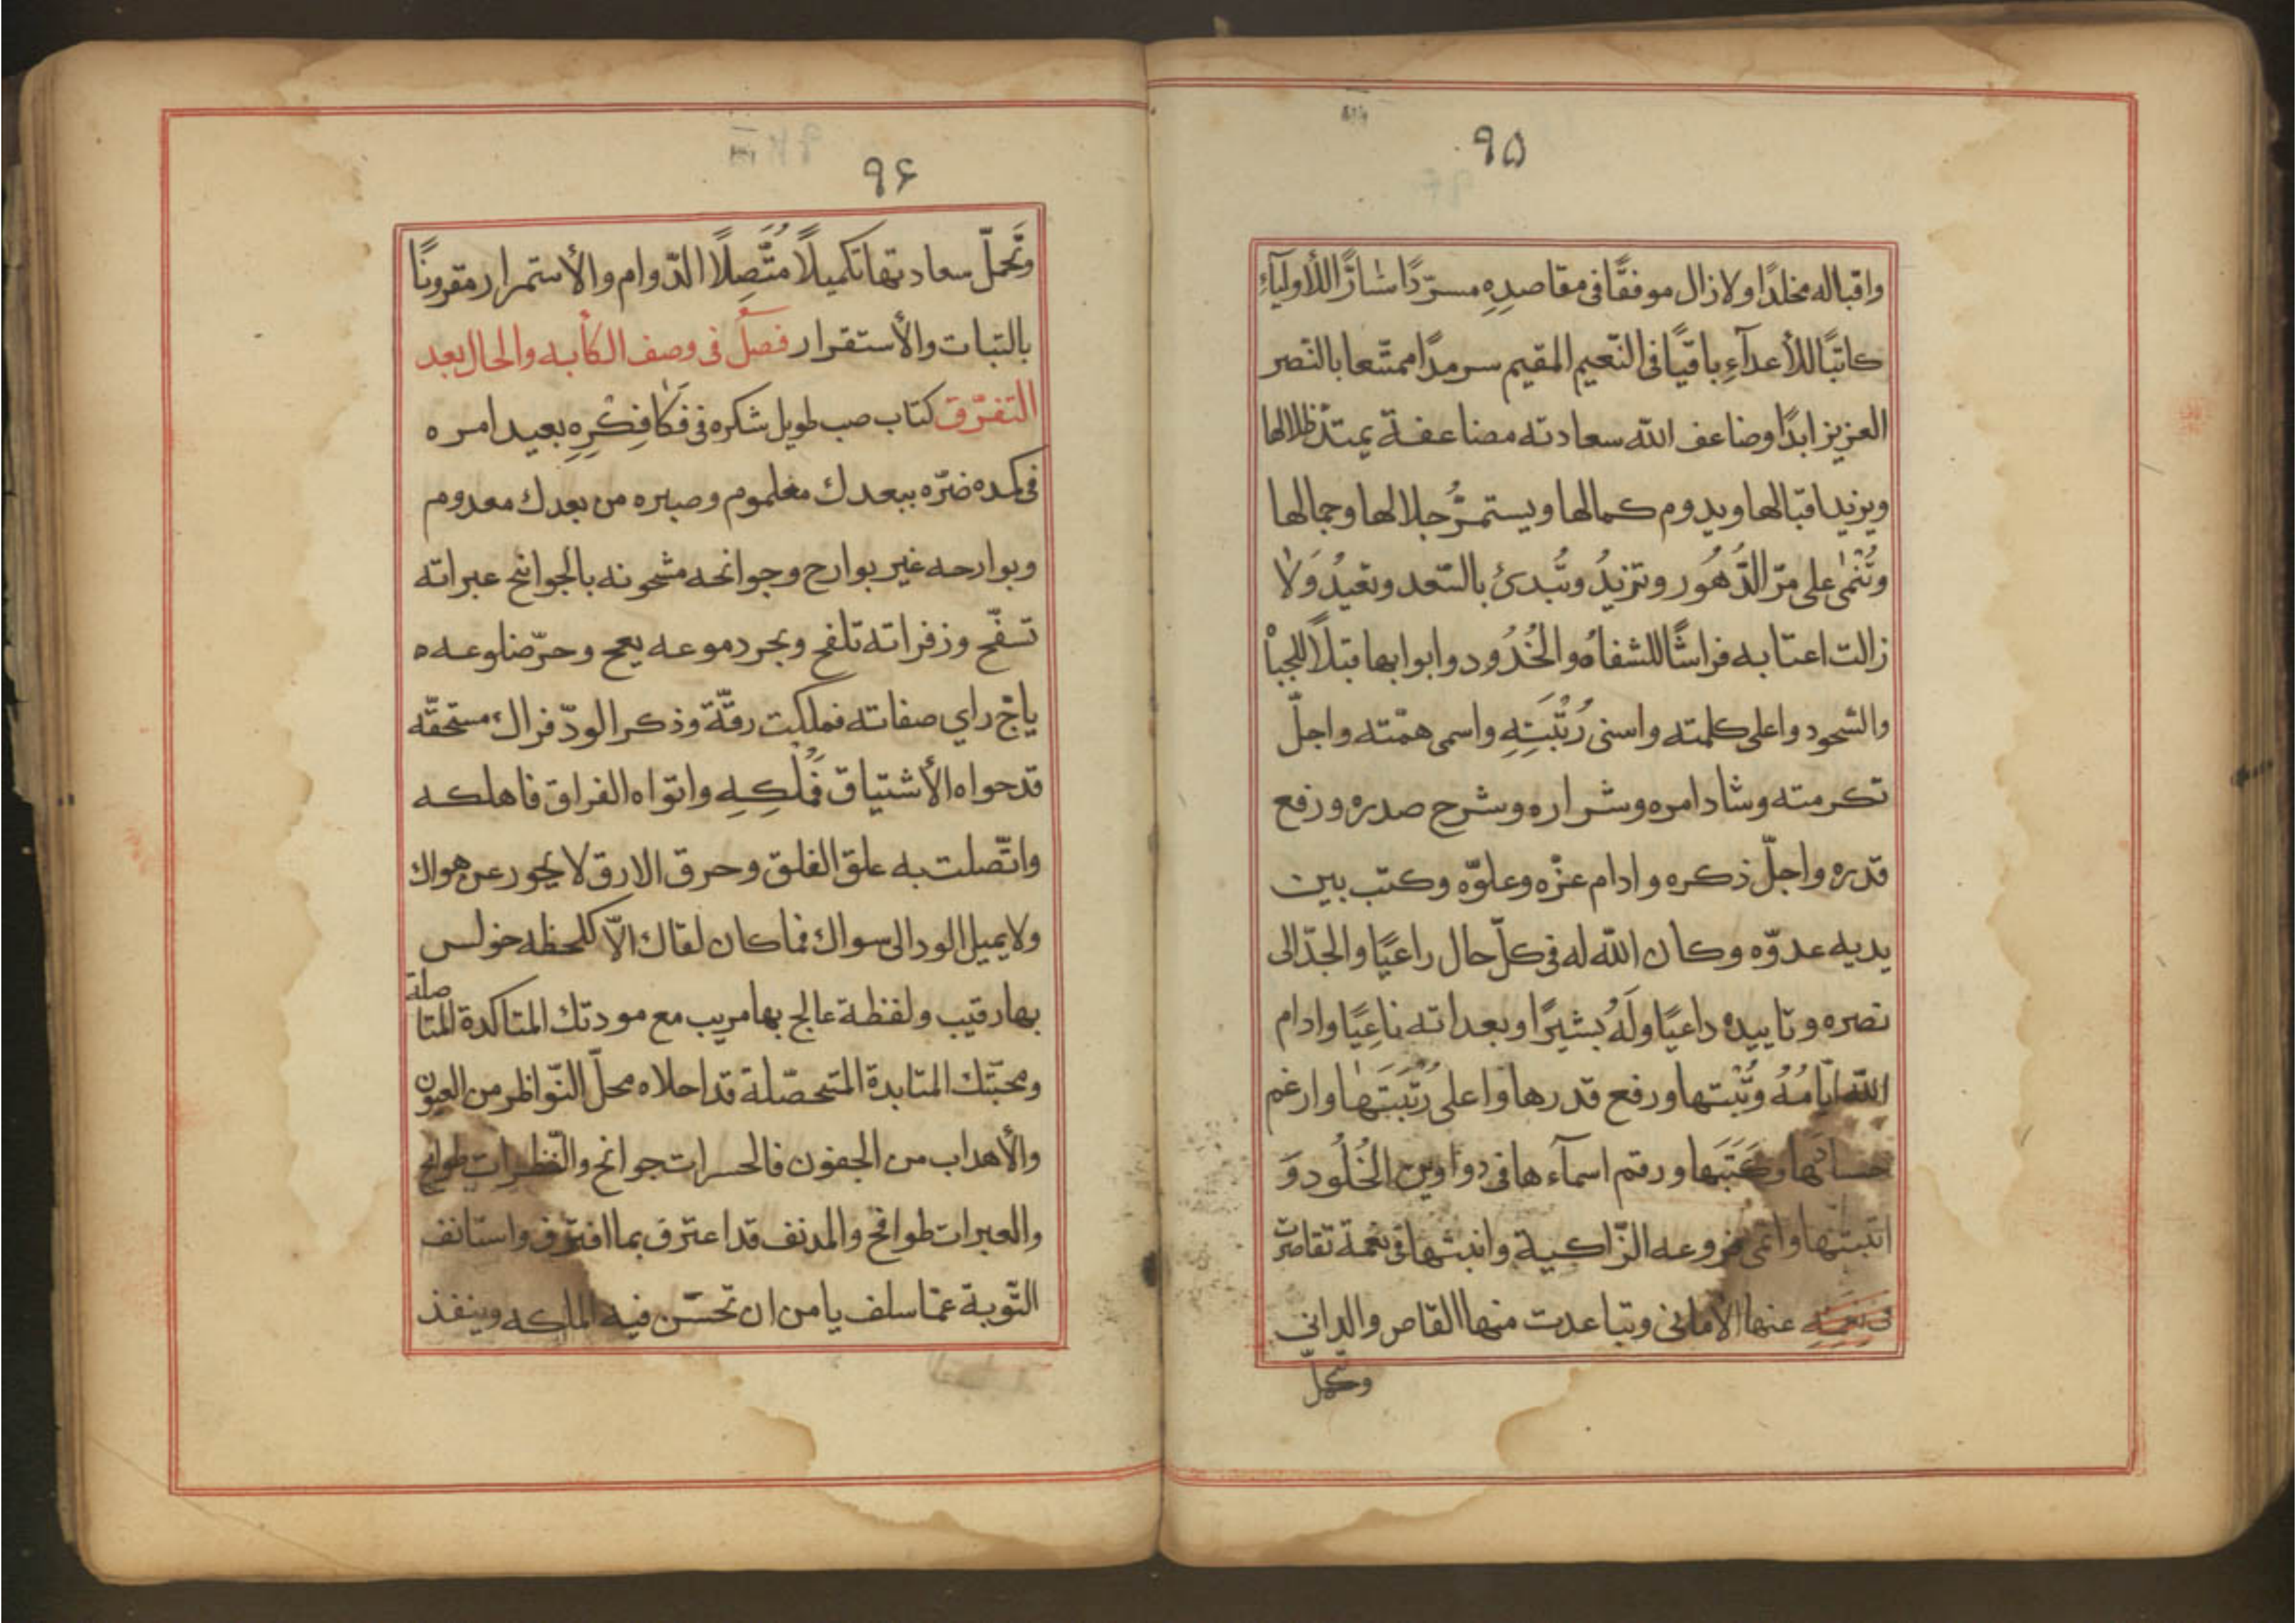 ٩٥
واقباله مخلدًا ولازال موفقًا فى مقاصدِهِ مسرّدًا سٰارًّا للأوليآءِ
كاتبًا للأعدآءِ باقيًا فى النّعيم المقيم سرمدًا ممتّعا بالنّصر
العزيز ابدًا وضاعف الله سعادته مضاعفة يمتدّ ظلالها
ويزيد اقبالها ويدوم كمالها ويستمرُّ جلالها وجمالها
وتُنْمىٰ على مرّ الدُّهُور وتزيدُ وتُبدئُ بالسّعد وتعيدُ وَلاٰ
زالت اعتابه فراشًا للشفاهُ والخُدُود وابوابها قبلًا للجبا
والسّجود واعلى كلمته واسنى رُتْبَتِهِ واسمى همّته واجلّ
تكرمته وشاد امره وشرّ اره وشرح صدره ورفع
قدره واجلّ ذكره وادام عزّه وعلوّه وكتب بين
يديه عدوّه وكان الله له فى كلّ حال راعيًا والجدّ الى
نصره وتاييده داعيًا ولَهُ بشيرًا وبعداته ناعِيًا وادام
الله ايّامُهُ وثُبتها ورفع قدرها واعلى رُتْبَتَهٰا وارغم
حسادَها وكَبَتَها ورقم اسمآءها فى دواوين الخُلُود وَ
اثبتها وانمى فروعه الزّاكية وانبتها فى نعمة تقاصرت
عنها الأمانى وتباعدت منها القاصر والدانى
وتكمل
٩٦
وتَحملّ سعادتها تكميلًا مُتَّصِلًا الدّوام والأستمرار مقرونًا
بالثبات والأستقرار فصلٌ فى وصف الكأبه والحال بعد
التفرّق كتاب صب طويل شكره فى فَكٰا فِكْرِهِ بعيد امره
فى كمده ضرّه ببعدك معلموم وصبره من بعدك معدوم
وبوارحه غير بوارح وجوانحه مشحونه بالجوانح عبراته
تسفّح وزفراته تلفح وبجر دموعه يعج وحرّ ضلوعه ه
ياجّ راي صفاته فملكت رقّة وذكر الودّ فرال مستحقّه
قد حواه الأشتياق فَمُلكِهِ واتواه الفراق فاهلكه
واتّصلت به علق الفلق وحرق الارق لا يجور عن هواك
ولا يميل الود الى سواك فما كان لقاك الاّ كلحظه خولس
بها رقيب ولفظة عالج بها مريب مع مودتك المتاكدة المتا
صلة
ومحبّتك المتابدة المتحصّلة قد احلاه محلّ النّواظر من العيون
والأهداب من الجفون فالحسرات جوانح والنظرات طوامح
والعبرات طوافح والمدنف قد اعترف بما اقترف واستانف
التّوبة عمّا سلف يا من ان تحسّن فيه الملكه وينفذ